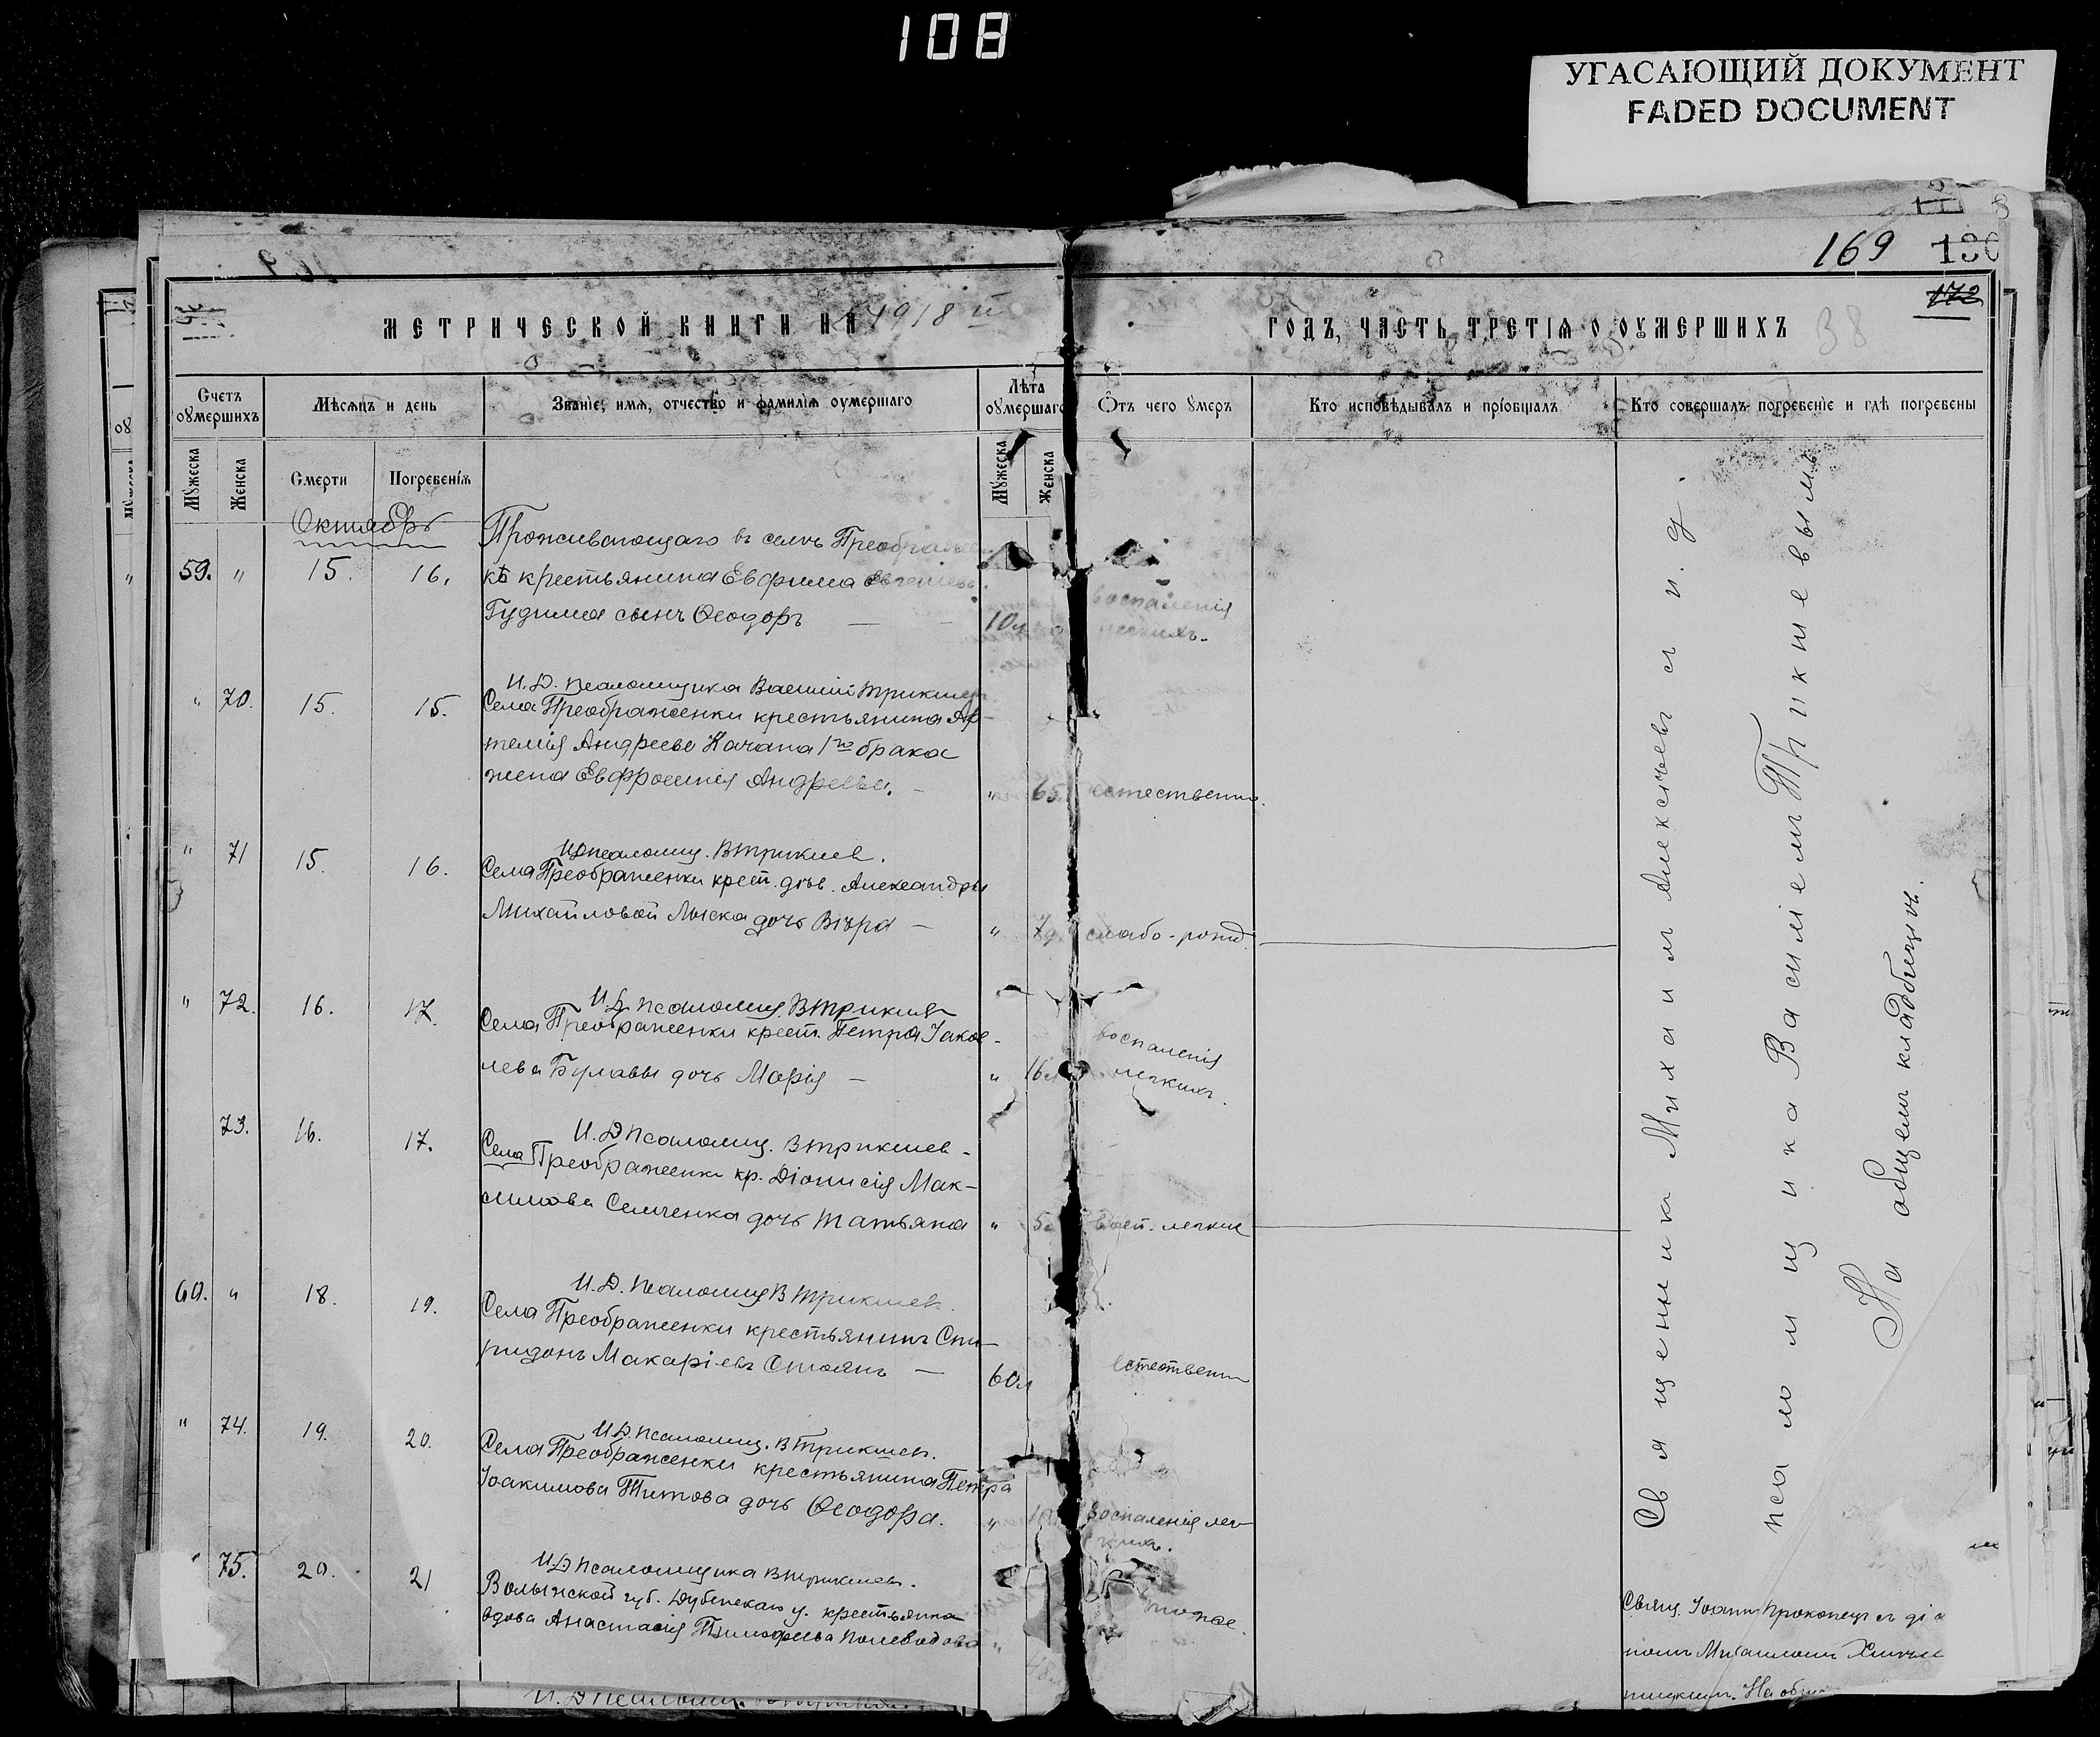 108
УГАСАЮЩИЙ ДОКУМЕНТ
FADED DOCUMENT
169
172
38
МЕТРИЧЕСКОЙ КНИГИ НА 1918 й
ГОДЪ, ЧАСТЬ ТРЕТІѦ О ОУМЕРШИХЪ
Счетъ оумершихъ
Мѣсяцъ и день
Званіе, имя, отчество и фамилія оумершаго
Лѣта оумершаго
Отъ чего умеръ
Кто исповѣдывалъ и пріобщалъ
Кто совершалъ погребеніе и гдѣ погребены
Мужеска
Женска
Смерти
Погребенія
Мужеска
Женска
Октябрь
Проживающаго въ селѣ Преображен
59. " 15. 16. кѣ крестьянина Евфима
Гудима сынъ Ѳеодоръ — 10 воспаленія легкихъ.
И. Д. псаломщика Василій Трикишев
" 70. 15. 15. Села Преображенки крестьянина Ар-
темія Андреева Качана 1го брака
жена Евфросинія Андреева. — " 65 естественно.
И Д псаломщ. В Трикишев.
" 71 15. 16. Села Преображенки крест. дѣв. Александры
Михайловой Лыска дочь Вѣра — " 7 слабо-рожд.
И. Д. псаломщ. В Трикишев
" 72. 16. 17. Села Преображенки крест. Петра Іаков-
лева Булавы дочь Марія — " 16 воспаленія легкихъ.
И. Д псаломщ. В Трикишев
73. 16. 17. Села Преображенки кр. Діонисія Мак-
симова Семченка дочь Татьяна " 5 восп. легких
И. Д. псаломщ В Трикишев.
60. " 18. 19. Села Преображенки крестьянинъ Спи-
ридонъ Макаріевъ Стоянъ — 60л естественн
И Д. псаломщ. В Трикишев.
" 74. 19. 20. Села Преображенки крестьянина Петра
Іоакимова Титова дочь Ѳеодора. " воспаленія лег-
кихъ.
И Д псаломщика В Трикишев.
75. 20. 21 Волынской губ. Дубенскаго у. крестьянка
вдова Анастасія Тимофеева Полеводова "
И. Д псаломщ.
Священникъ Михаилъ Алексѣевъ съ и. д.
псаломщика Василіемъ Трикишевымъ
На общемъ кладбищѣ.
Свящ. Іоаннъ Прокопецъ съ діа
кономъ Михаиломъ
На общ